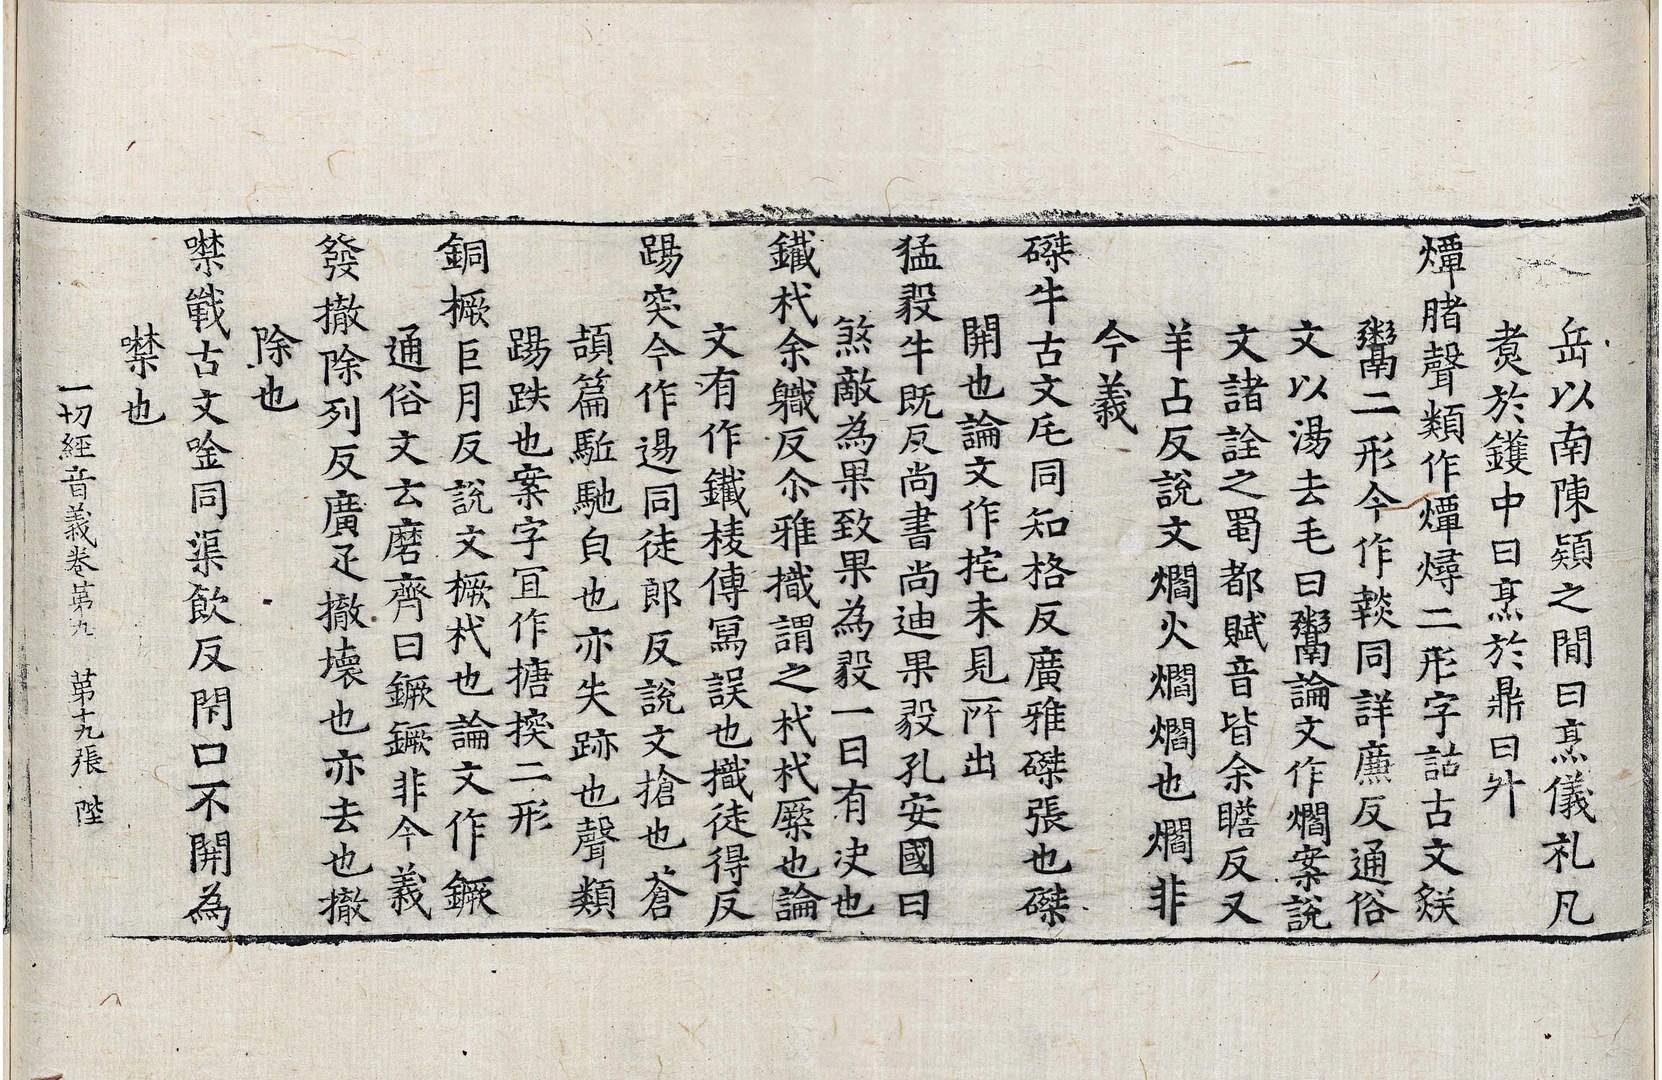 岳以南陳潁之間曰烹儀礼凡
煑於鑊中曰烹於鼎曰升
燂睹聲類作燂燖二形字詁古文錟
鬻二形今作㷋同詳廉反通俗
文以湯去毛曰鬻論文作爓案說
文諸詮之蜀都賦音皆余瞻反又
羊占反說文爓火爓爓也爓非
今義
磔牛古文厇同知格反廣雅磔張也磔
開也論文作挓未見所出
猛毅牛既反尚書尚迪果毅孔安國曰
煞敵為果致果為毅一曰有决也
鐵杙余軄反尒雅樴謂之杙杙橜也論
文有作鐵棱傳冩誤也樴徒得反
踼突今作逿同徒郎反說文搶也蒼
頡篇駈馳皃也亦失跡也聲類
踼跌也案字冝作搪揬二形
銅橛巨月反說文橛杙也論文作鐝
通俗文云磨齊曰鐝鐝非今義
發撤除列反廣疋撤壞也亦去也撤
除也
噤戰古文唫同渠飲反閇口不開為
噤也
一切經音義卷第九 第十九張 陛